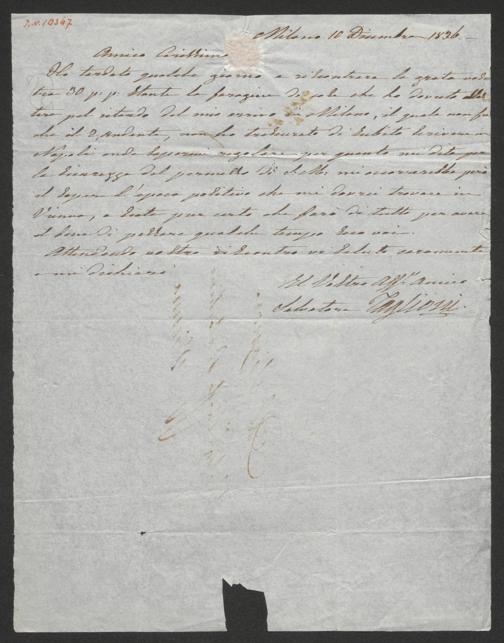 I.N. 10347
Milano 10 Dicembre 1836
Amico Carissimo
Ho tardato qualche giorno a riscontrare la grata vostra
30 p. p. stante la
pel ritardo del mio arrivo a Milano, il quale non fu
che il 2, andante, non ho trascurato di subito scrivere in
Napoli onde sapermi regolare per quanto
la del mi occorrerebbe però
di sapere l'epoca positiva che mi dovrei trovare in
Vienna, e state pur certo che farò di tutto per avere
il bene di passare qualche tempo con voi.
Attendendo vostro riscontro vi saluto caramente
e mi dichiaro
Il Vostro Aff. Amico
Salvatore Taglioni